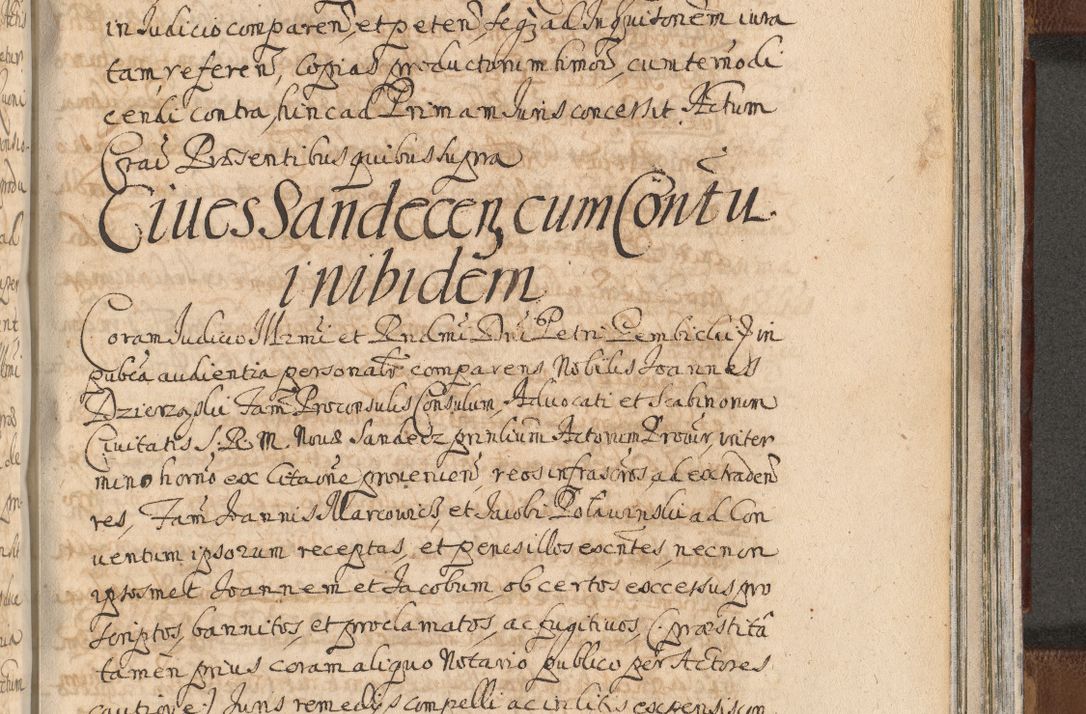 in Judicio comparen̄, et peten̄, seq̨ ad Inquisitionēm iura
tam, referen̄, Copias productorum hmōi, cum term̄o di
cendi contra, hinc ad Primam Juris concessit. Actum
Craē Prӕsentibus quibus supra
Ciues Sandecen̄, cum Cōnt̄u
inibidēm
Coram Judicio Illrmī et Rndmī Dnī Petri Gembiclii in
pubcā audientia personalr̄ comparens Nobilis Joannes
Dzierząski Fam̄ Proconsulis Consulum, Aduocati et Scabinorum
Ciuitatis S. R. M. Nouӕ Sandecz prinlium Actorum Procur̄,
mino horn̄o ex Citatōne prouenien̄, reos infrascr̄os, ad extraden̄
res, Fam̄ Joannis Marcowich, et Jacobi Polawinski ad Con
uentum ipsorum receptas, et penes illos exn̄tes, necnon
ipsosmet Joannem et Jacobum, ob certos excessus pro
scriptos, bannitos, et proclamatos, ac fugitiuos, (prӕstitā
tamen prius coram aliquo Notario publico per Actores
cautione) Juris remedijs compelli ac in litis expensis con